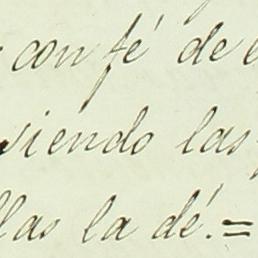 con fé de
viendo las
llas la dé.=